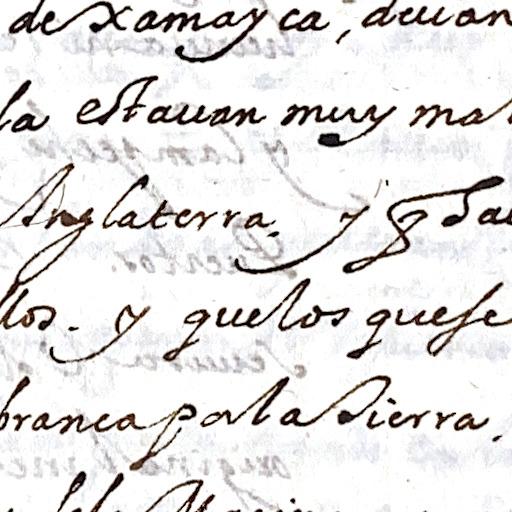 de Xamayca, deuan
la estauan muy mal
Anglaterra. y q̃ dau
llos. y que los que se
branca por la Sierra.